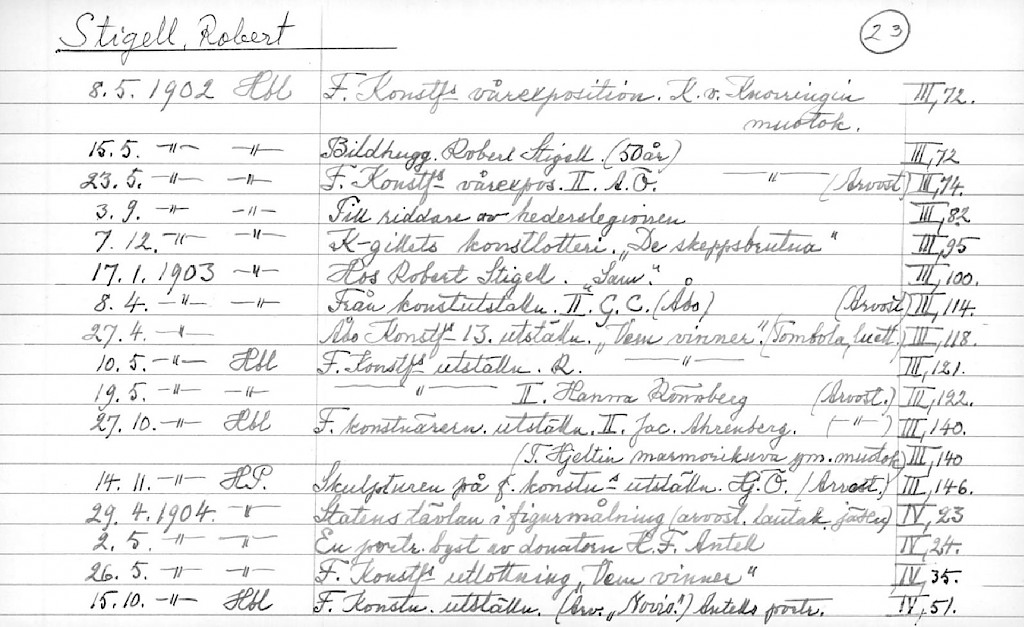 Stigell, Robert 23
8.5. 1902 Hbl F. Konstfs vårexposition. K. v. Knorringin III, 72.
muotok.
15.5. -"- -"- Bildhugg. Robert Stigell. (50 år) III, 72
23.5. -"- -"- F. Konstfs vårexpos. II. A. Ö. -"- (Arvost.) III, 74.
3.9. -"- -"- Till riddare av hederslegionen III, 82
7.12. -"- -"- K-gillets konstlotteri. „De skeppsbrutna" III, 95
17.1. 1903 -"- Hos Robert Stigell. III, 100.
8.4. -"- -"- Från konstutställn. II. G. C. (Åbo) (Arvost.) III, 114.
27.4. -" Åbo Konstfs 13. utställn. „Vem vinner". (Tombola, luett.) III, 118.
10.5. -"- Hbl F. Konstfs utställn. R. -"- III, 121.
19.5. -"- -"- II. Hanna Rönnberg (Arvost.) III, 122.
27.10. -"- Hbl F. konstnärern. utställn. II. Jac. Ahrenberg. (-"-) III, 140.
(T. Hjeltin marmorikuva ym. muotok) III, 140
14.11. -"- H.P. Skulpturen på f. konstns utställn. Hj. Ö. (Arvost.) III, 146.
29.4. 1904. -"- Statens tävlan i figurmålning (arvost. lautak. jäsen) IV, 23
2.5. -"- -"- En portr. byst av donatorn H. F. Antell IV, 24.
26.5. -"- -"- F. Konstfs utlottning „Vem vinner" IV, 35.
15.10. -"- Hbl F. Konstn. utställn. (Arv. ) Antells portr. IV, 51.